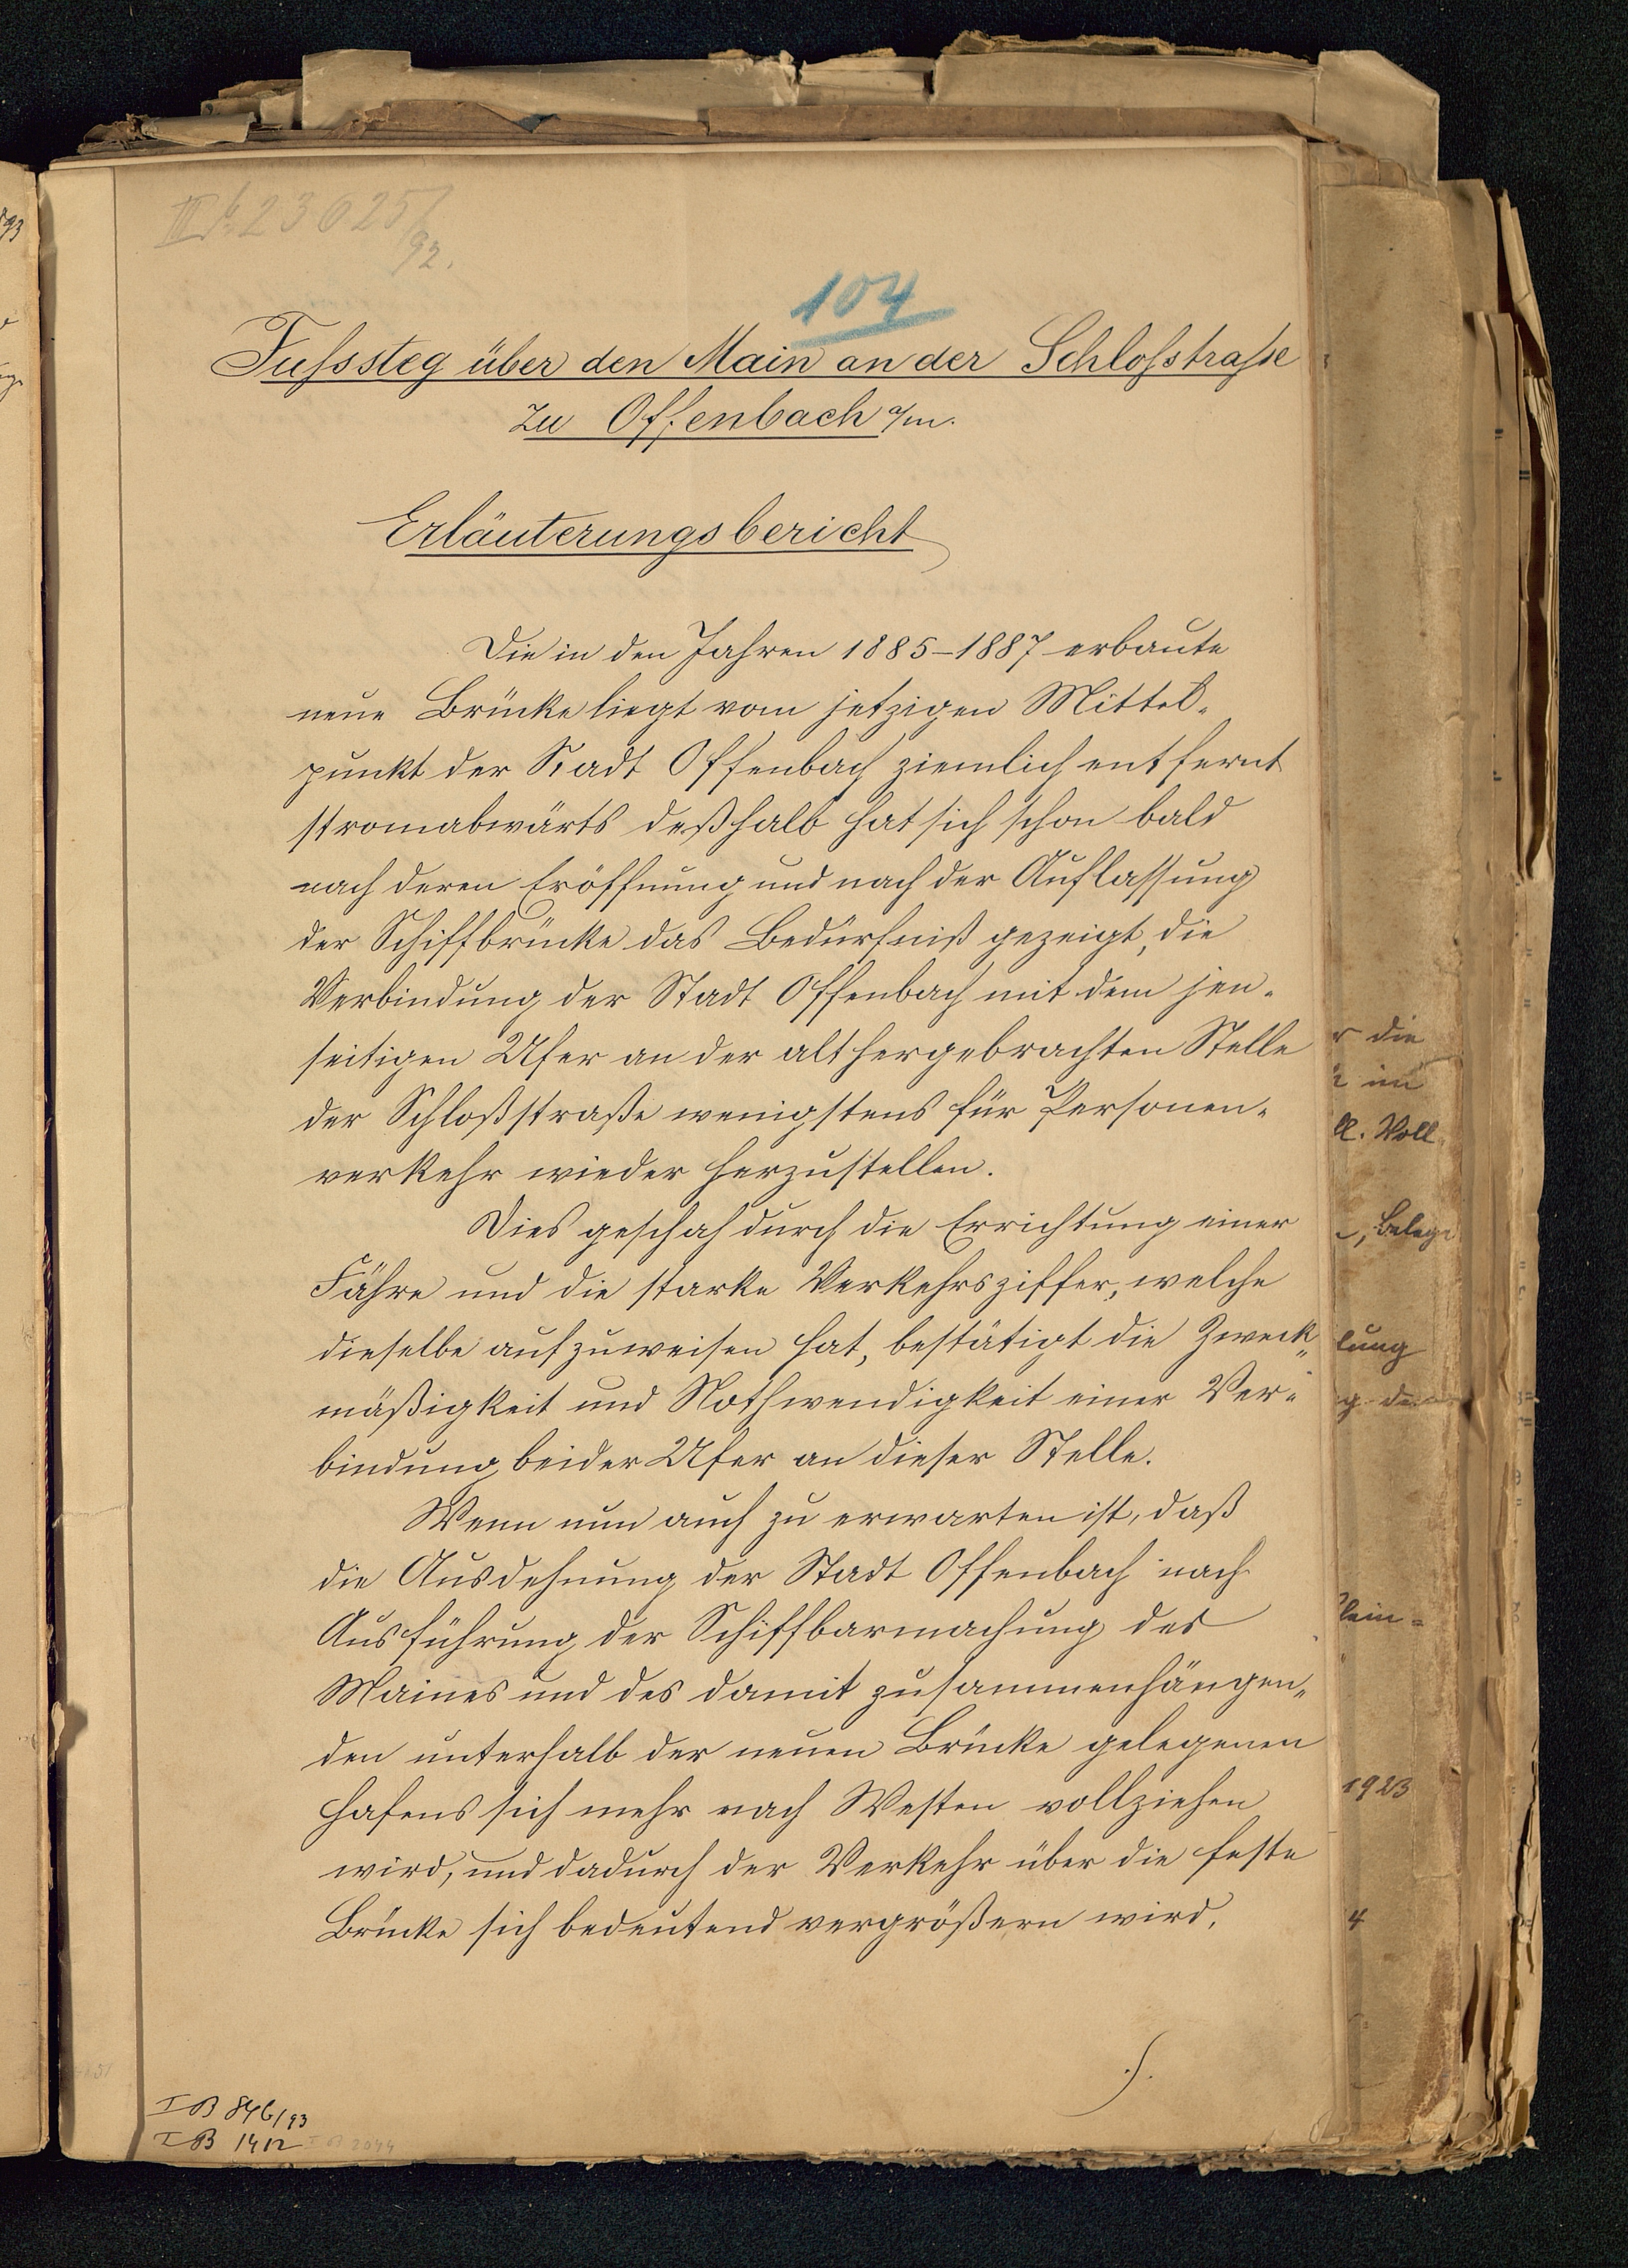 III b. 23025/92.
104
Fußsteg über den Main an der Schloßstraße
zu Offenbach a/m.
Erläuterungsbericht
Die in den Jahren 1885–1887 erbaute
neue Brücke liegt vom jetzigen Mittel-
punkt der Stadt Offenbach ziemlich entfernt
stromabwärts deßhalb hat sich schon bald
nach deren Eröffnung und nach der Auflassung
der Schiffbrücke das Bedürfniß gezeigt, die
Verbindung der Stadt Offenbach mit dem jen-
seitigen Ufer an der althergebrachten Stelle
der Schloßstraße wenigstens für Personen-
verkehr wieder herzustellen.
Dies geschah durch die Errichtung einer
Fähre und die starke Verkehrsziffer, welche
dieselbe aufzuweisen hat, bestätigt die Zweck-
mäßigkeit und Nothwendigkeit einer Ver-
bindung beider Ufer an dieser Stelle.
Wenn nun auch zu erwarten ist, daß
die Ausdehnung der Stadt Offenbach nach
Ausführung der Schiffbarmachung des
Maines und des damit zusammenhängen-
den unterhalb der neuen Brücke gelegenen
Hafens sich mehr nach Westen vollziehen
wird, und dadurch der Verkehr über die feste
Brücke sich bedeutend vergrößern wird,
I B 846/93
I B 1412 I B 2044
93
die
im
Voll-
Belege
lung
1923
4